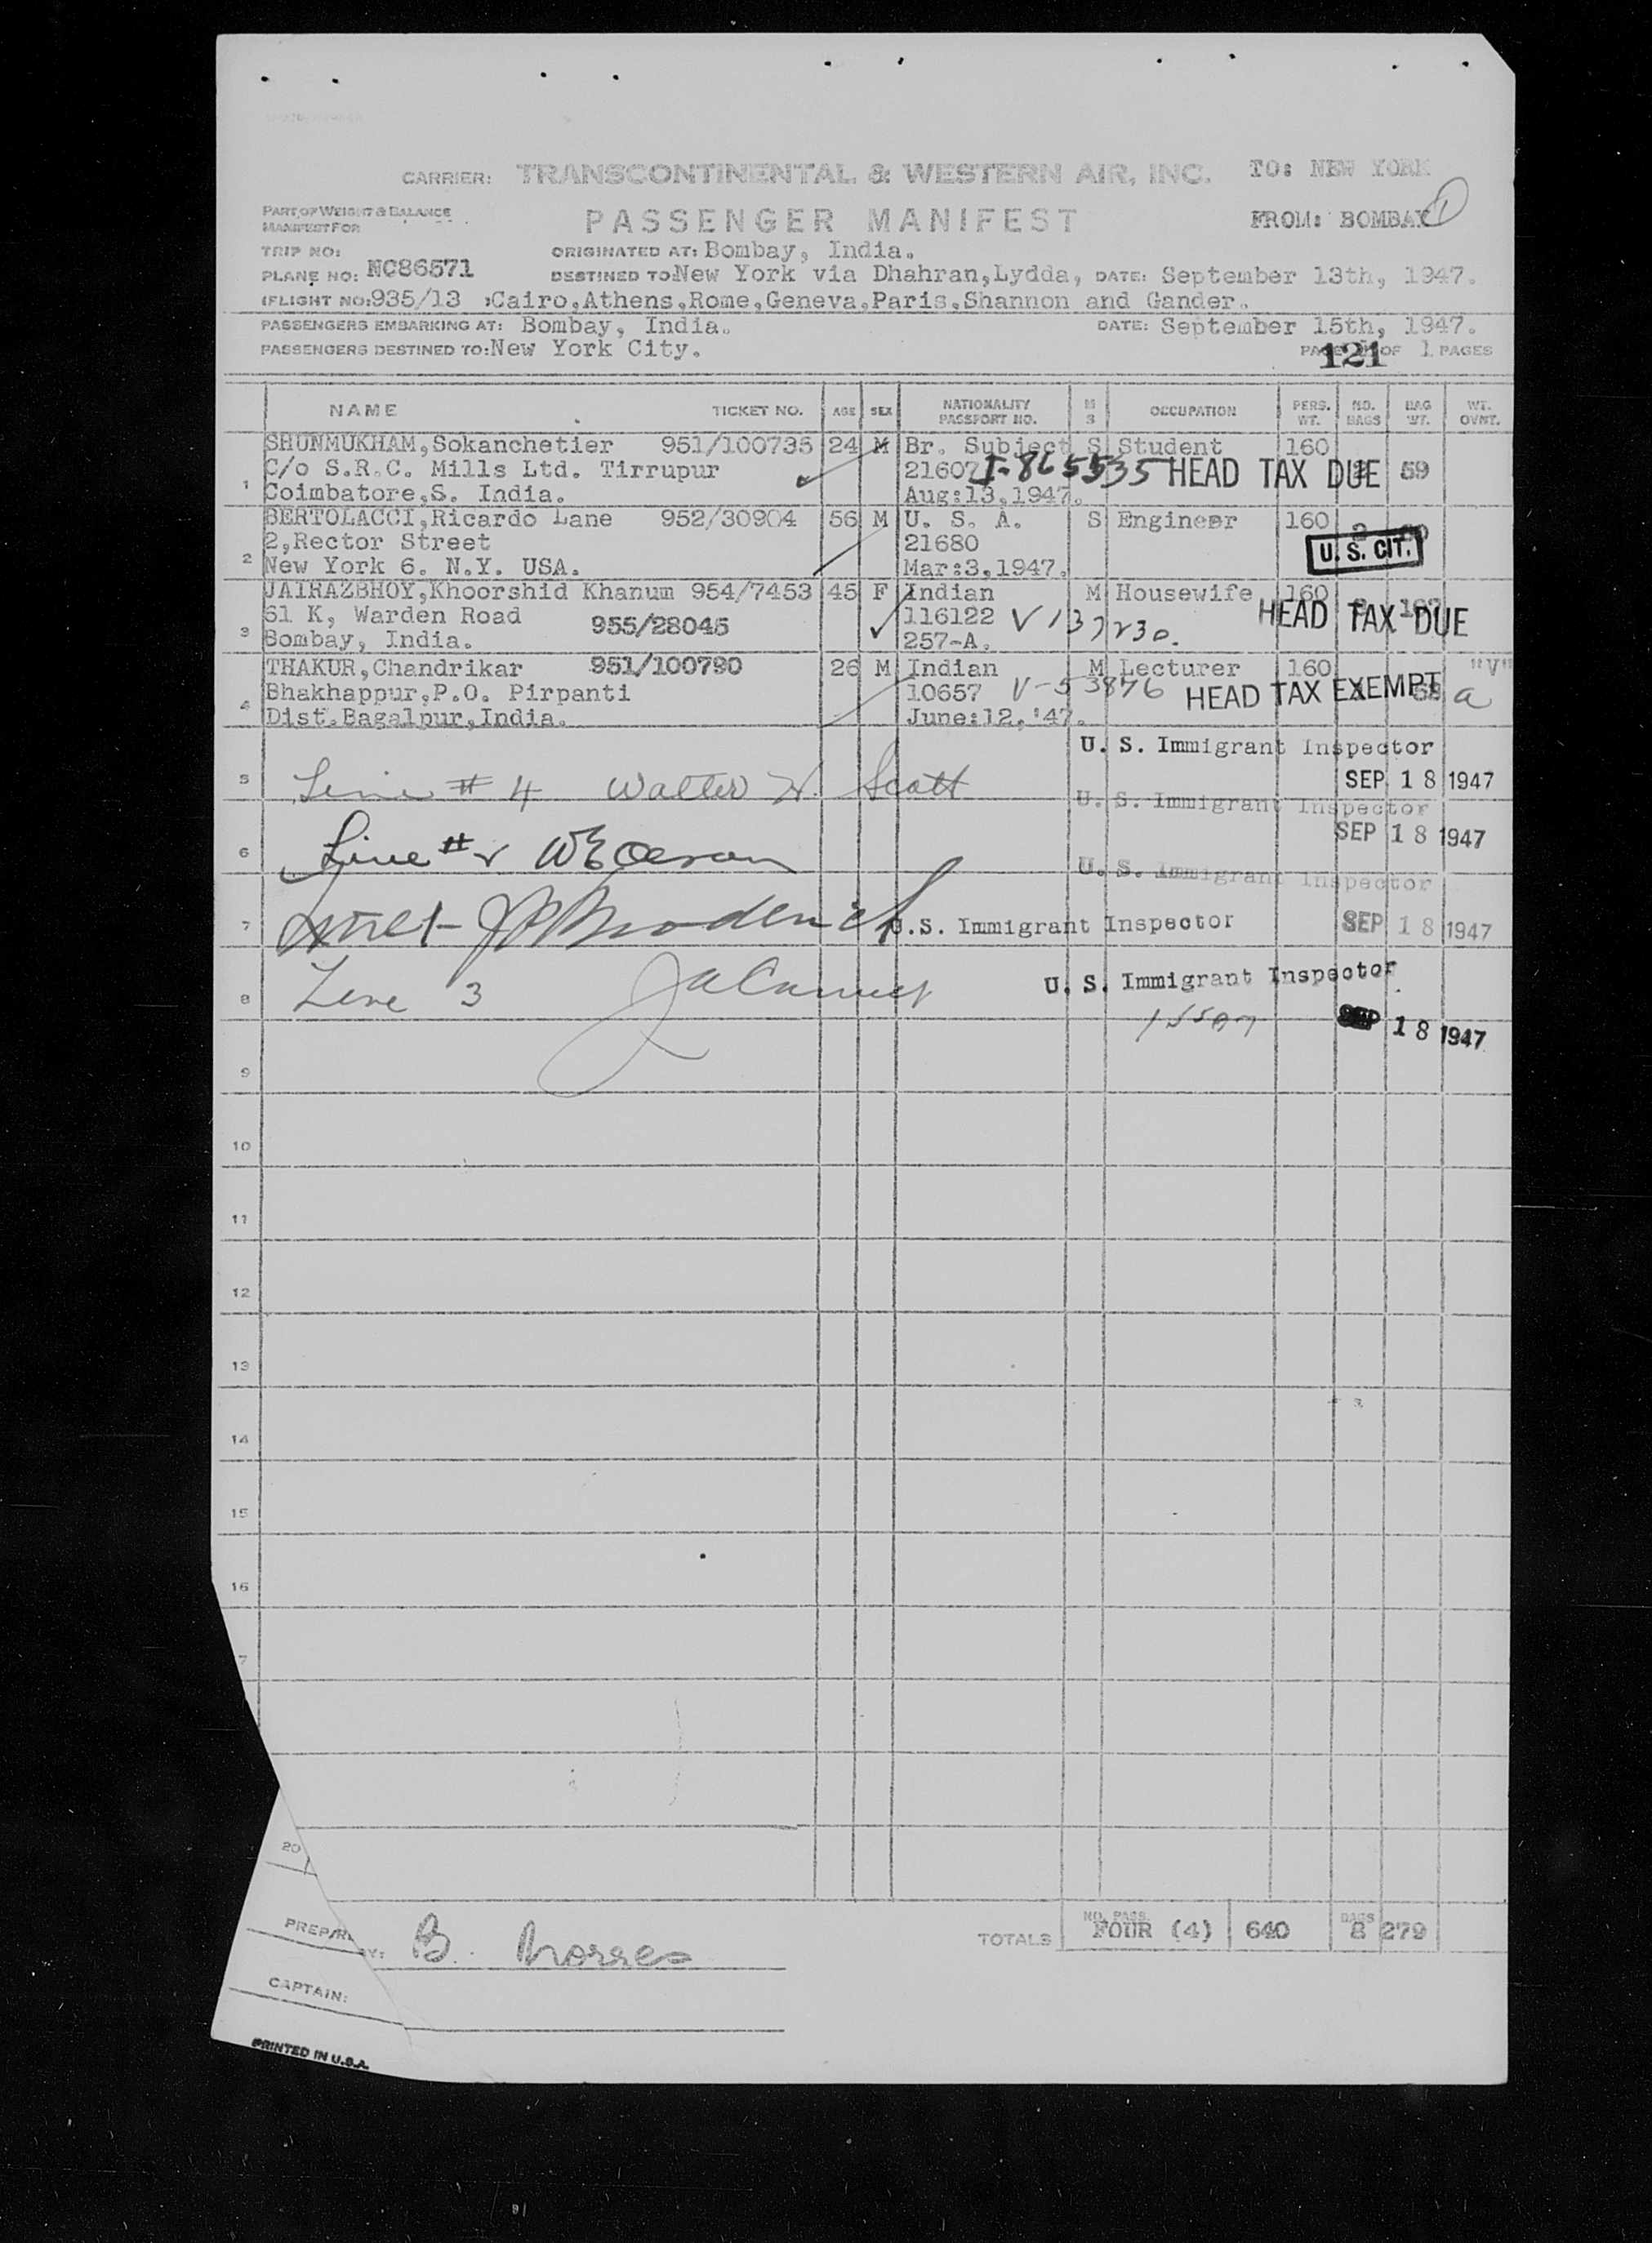 CARRIER: TRANSCONTINENTAL & WESTERN AIR, INC. TO: NEW YORK
PART OF WEIGHT & BALANCE
MANIFEST FOR
PASSENGER MANIFEST FROM: BOMBAY 1
TRIP NO: ORIGINATED AT: Bombay, India.
PLANE NO: NC86571 DESTINED TO New York via Dhahran,Lydda, DATE: September 13th, 1947.
(FLIGHT NO: 935/13 :Cairo,Athens,Rome,Geneva,Paris,Shannon and Gander.
PASSENGERS EMBARKING AT: Bombay, India. DATE: September 15th, 1947.
PASSENGERS DESTINED TO: New York City. PAGE OF 1 PAGES
121
NAME TICKET NO. AGE SEX NATIONALITY PASSPORT NO. M S OCCUPATION PERS. WT. NO. BAGS BAG WT. WT. OVNT.
SHUNMUKHAM,Sokanchetier 951/100735 24 M Br. Subject S Student 160
C/o S.R.C. Mills Ltd. Tirrupur 21607 I-865535 HEAD TAX DUE 59
1 Coimbatore,S. India. Aug:13,1947.
BERTOLACCI,Ricardo Lane 952/30904 56 M U. S. A. S Engineer 160
2,Rector Street 21680 U. S. CIT.
2 New York 6. N.Y. USA. Mar:3,1947.
JAIRAZBHOY,Khoorshid Khanum 954/7453 45 F Indian M Housewife 160
61 K, Warden Road 955/28045 116122 V137230. HEAD TAX DUE
3 Bombay, India. 257-A.
THAKUR,Chandrikar 951/100790 26 M Indian M Lecturer 160 "V"
Bhakhappur,P.O. Pirpanti 10657 V-53876 HEAD TAX EXEMPT a
4 Dist.Bagalpur,India. June:12,'47.
U. S. Immigrant Inspector
5 Line # 4 Walter H. Scott SEP 18 1947
U. S. Immigrant Inspector
SEP 18 1947
6 Line # 2
U. S. Immigrant Inspector
7 Line 1 U.S. Immigrant Inspector SEP 18 1947
8 Line 3 U. S. Immigrant Inspector
SEP 18 1947
9
10
11
12
13
14
15
16
7
20
NO. PASS. BAGS
TOTALS FOUR (4) 640 8 279
PREPAR BY: B.
CAPTAIN:
PRINTED IN U.S.A.